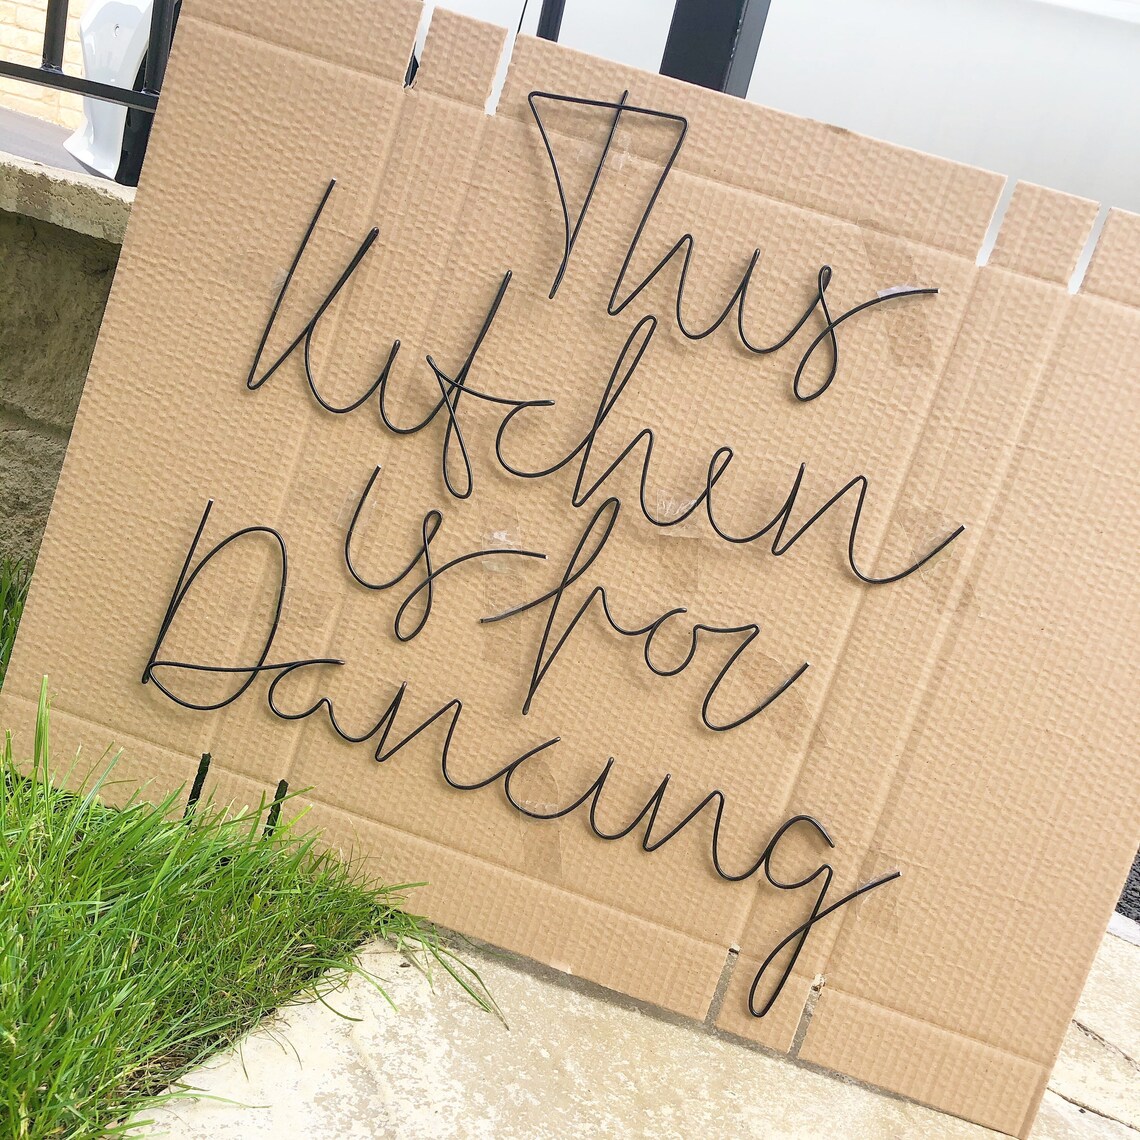 This
Kitchen
is for
Dancing